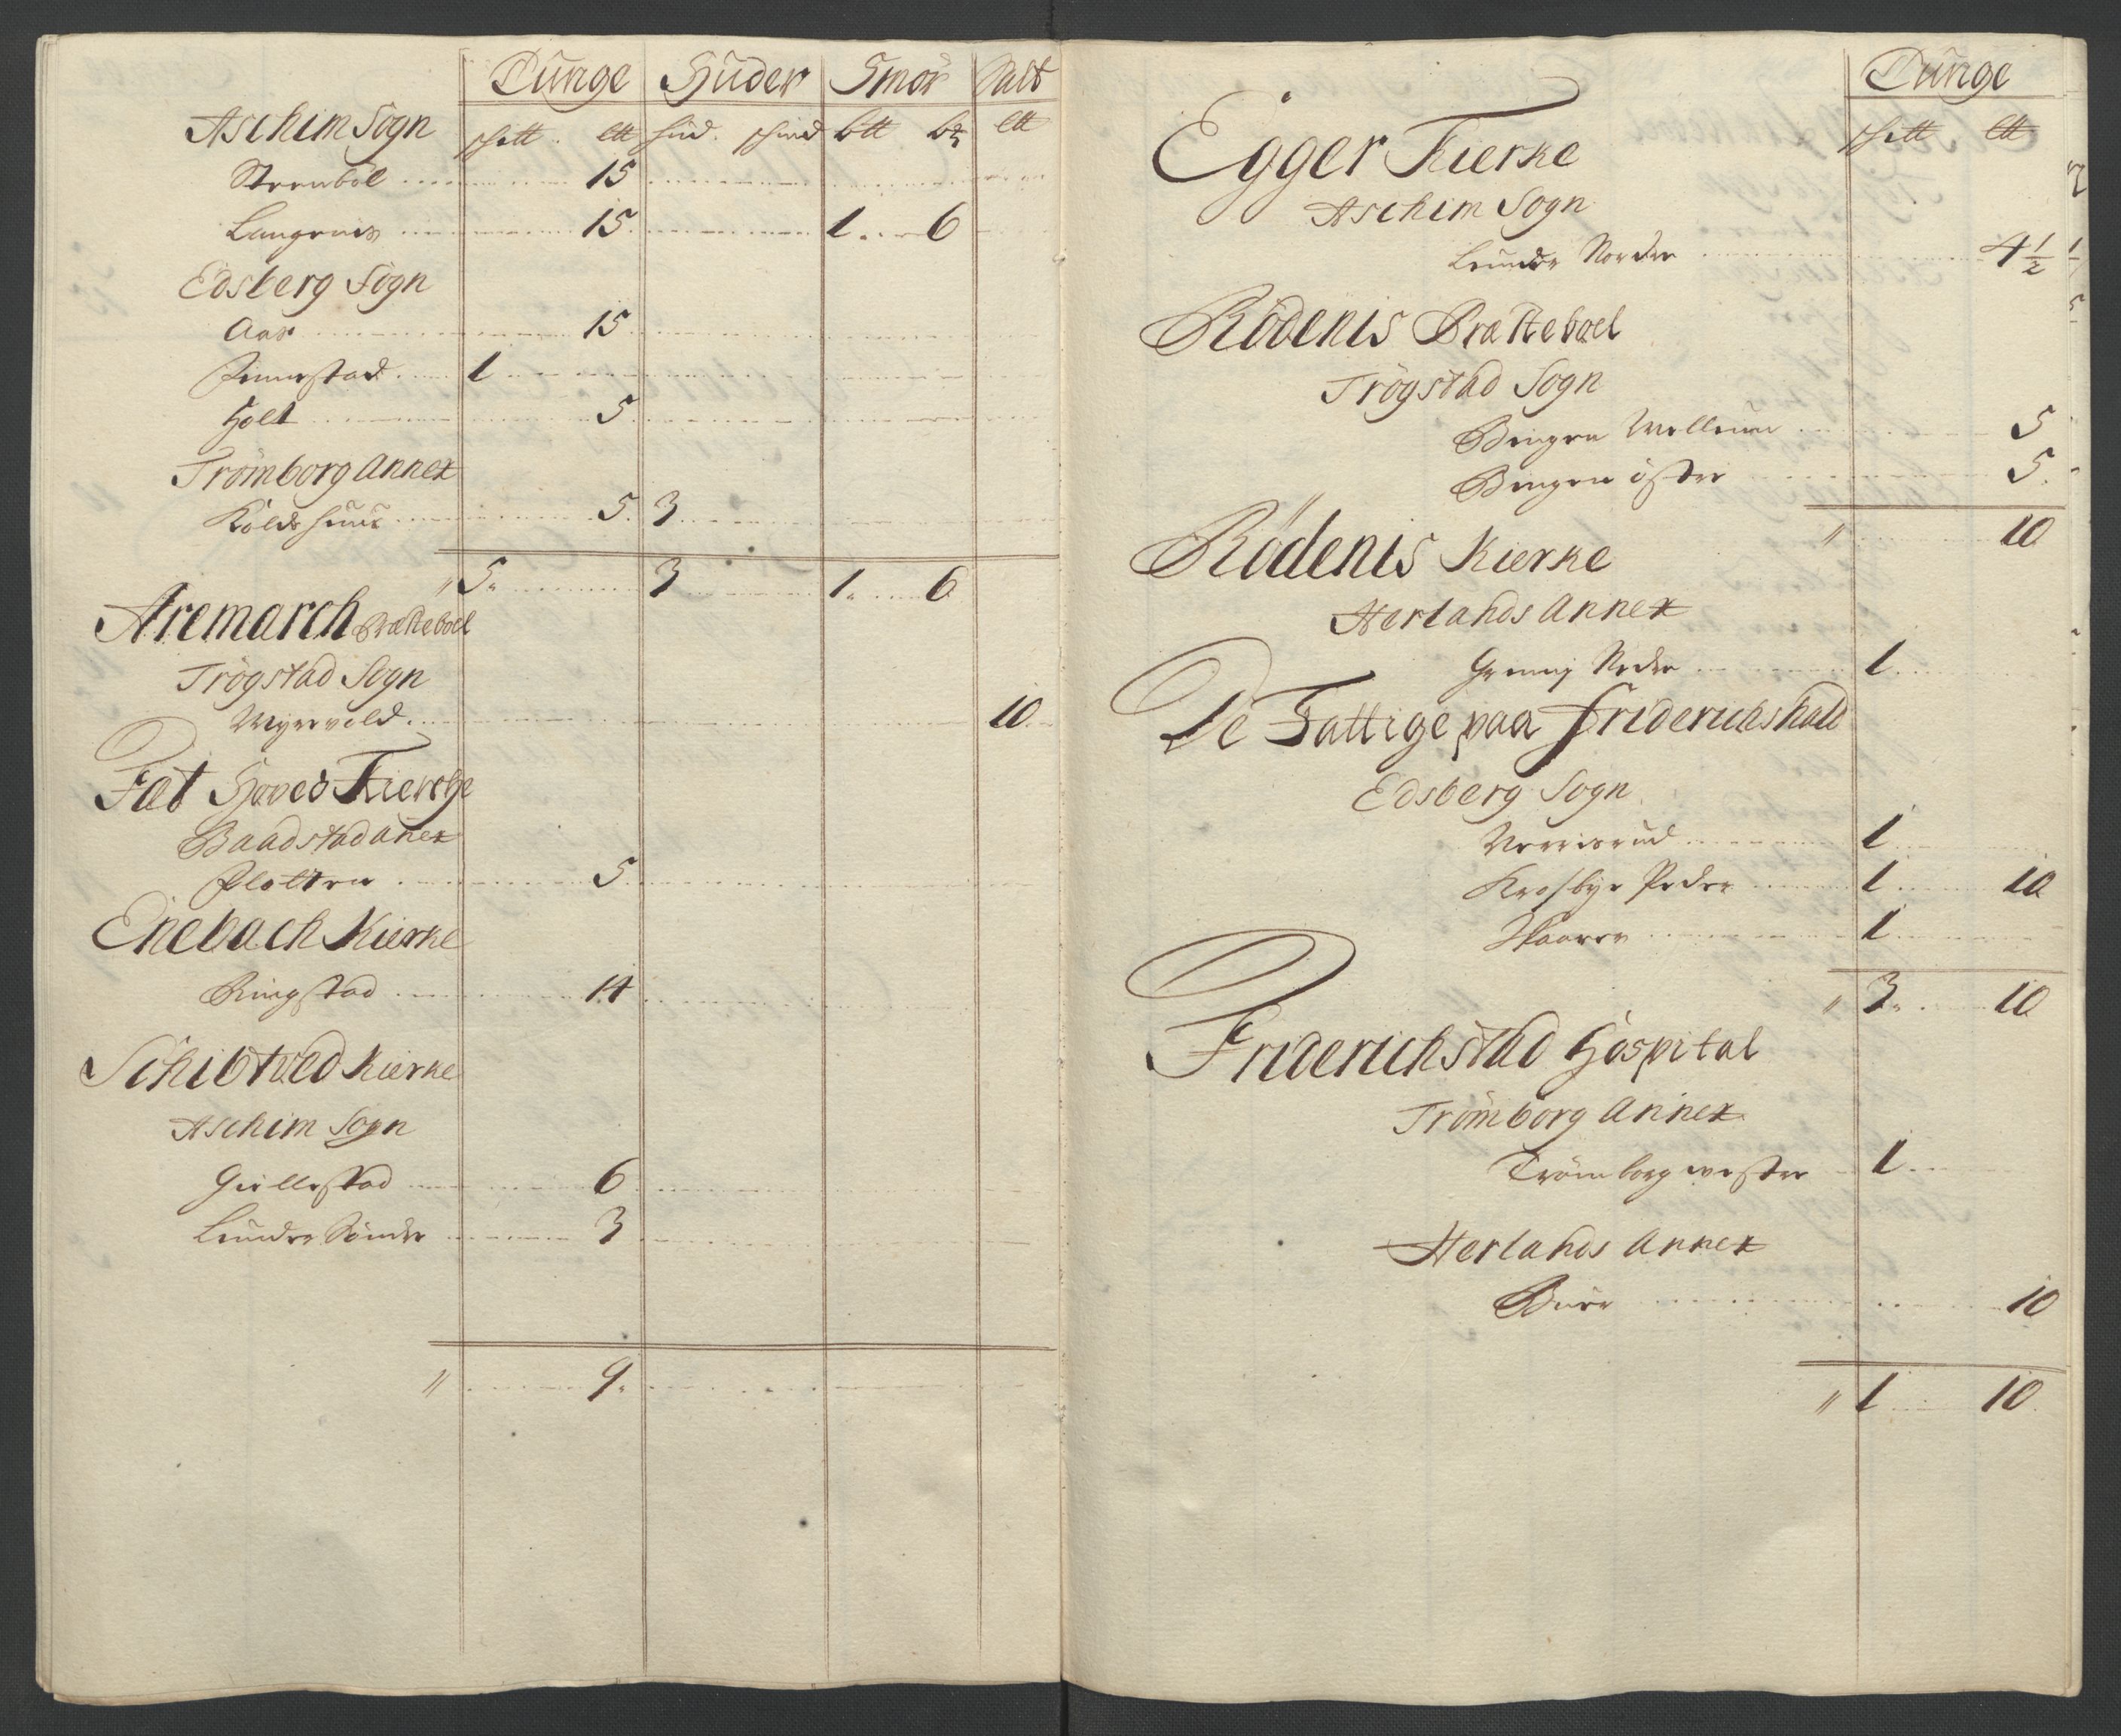 Tünge Hüder Smör Salt
Aschim Sogn sch℔ ℔ hud. schind b℔ bz ℔
Steenböl 15
Langenis 15 1 6
Edsberg Sogn
Aas 15
Finnestad 1
Holt 5
Trömborg Annex
Kolds huus 5 3
" 5 3 1 6
Aremarch Præsteboel
Trögstad Sogn
Myrevold 10
Fæt Hoved Kierche
Baadstad anex
Flatten 5
Enebach Kierke
Ringstad 14
Schibtved Kierke
Aschim Sogn
Gullestad 6
Lunder Sönder 3
" 9
Tünge
sch℔ ℔
Egger Kierke
Aschim Sogn
Lunder Nordre 4½
Rödenis Præsteboel
Trögstad Sogn
Bingen Mellum 5
Bingen öster 5
" 10
Rödenis Kierke
Herlands Annex
Grennj Nedre 1
De Fattige paa Friderichshald
Edsberg Sogn
Norrisrud 1
Krosbye Peder 1 10
Skaaren 1
" 3 10
Friderichstad Hospital
Trömborg Annex
Trömborg wester 1
Herlands Annex
Buer 10
" 1 10